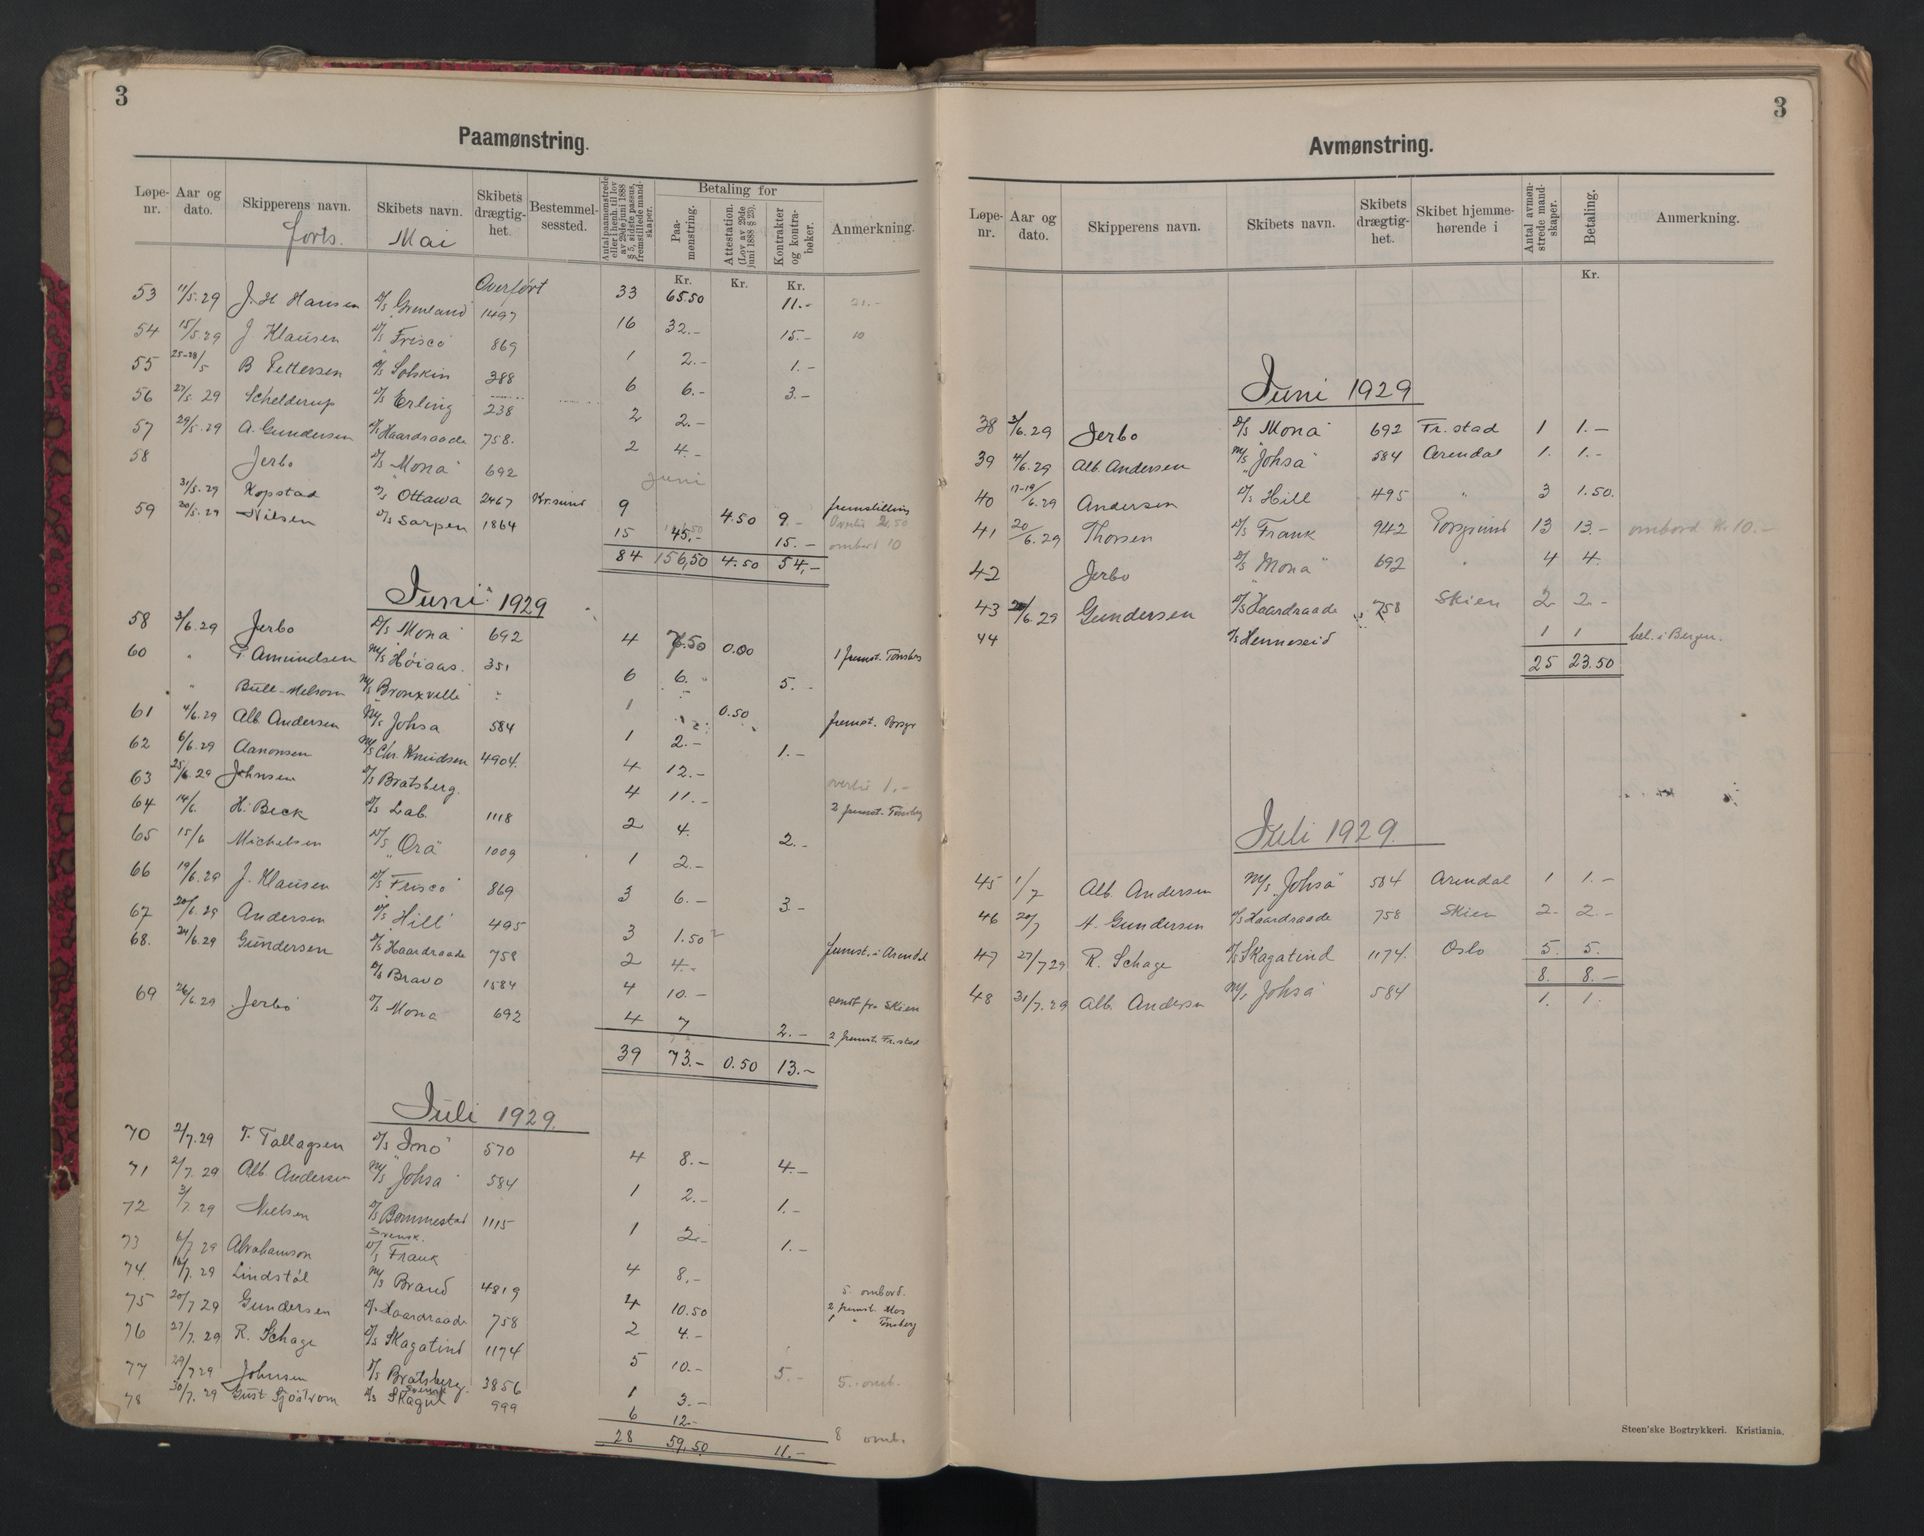 3
Paamønstring.
Løpe-nr. Aar og dato. Skipperens navn. Skibets navn. Skibets drægtighet. Bestemmelsessted. Antal paamønstrede eller i henh. til lov av 29de juni 1888 § 5, sidste passus, fremstillede mandskaper. Betaling for Paamønstring. Attestation. (Lov av 29de juni 1888 § 25). Kontrakter og kontrabøker. Anmerkning.
forts. Mai
Kr. Kr. Kr.
Overført 33 65.50 11.-
53 11/5.29 J. H Hansen D/S Grenland 1497 16 32.- 15.- 10
54 15/5.29 J. Klausen D/S Frisco 869 1 2.- 1.-
55 25-28/5 B Pettersen D/S Solskin 388 6 6.- 3.-
56 27/5 29 Schelderup D/S Erling 238 2 2.-
57 29/5.29 A. Gundersen D/S Haardraade 758. 2 4.-
58 Jerbo D/S "Mona" 692
Juni
31/5.29 Kopstad D/S Ottawa 2467 Kr.sund 9 4.50 9.- fremstilling
59 20/5.29 Nilsen D/S Sarpen 1864 15 45,- 15.- ombord 10
84 156,50 4.50 54,-
Juni 1929
58 3/6.29 Jerbo D/S Mona 692 4 7.50 0.00 1 fremst. Tønsberg
60 T. Amundsen M/S Høiaas. 351 6 6. 5.-
" Bull-Nelson M/S Bronxville 1 0.50 fremst. Porsgr
61 4/6.29 Alb. Andersen M/S Johsa 584 1 2.- 1.-
62 6/6.29 Aanonsen M/S Chr. Knudsen 4904. 4 12.-
63 25/6 29 Johnsen D/S Bratsberg. 4 11.- overtid 1.-
64 14/6. H. Beck D/S Lab. 1118 2 4. 2.- 2 fremst. Tønsberg
65 15/6 Michelsen D/S "Ora" 1009 1 2.-
66 19/6.29 J. Klausen D/S Frisco 869 3 6.- 3.-
67 20/6.29 Andersen D/S Hill 495 3 1.50
68. 24/6.29 Gundersen D/S Haardraade 758 2 4.- fremst. i Arendal
D/S Bravo 1584 4 10.-
69 26/6.29 Jerbo D/S Mona 692 4 7 2.- sendt fra Skien
2 fremst. Fr.stad
39 73.- 0.50 13.-
Juli 1929.
70 2/7.29 T. Tallagsen D/S "Ino" 570 4 8.- 4.-
71 2/7.29 Alb. Andersen M/S Johsa 584 1 2.- 1.-
72 3/7.29 Nielsen D/S Bommestad 1115 1 2.- 1.-
Svensk.
73 6/7 29 Abrahamson D/S Frank 4 8,-
74. 16/7.29 Lindstøl M/S Brand 4819 4 10.50 5. ombord.
75 20/7 29 Gundersen D/S Haardraade 758 2 4.- 2 fremst. Mos
1 " Tønsberg
76 27/7.29 R. Schage D/S Skagatind 1174 5 10.- 5.-
77 29/7 29 Johnsen D/S Bratsberg. 3856 1 3.- 5. omb.
Svensk
78 30/7.29 Gust Sjöstrom D/S Skagul 999 6 12.-
28 59,50 11.- 8 omb.
3
Avmønstring.
Løpe-nr. Aar og dato. Skipperens navn. Skibets navn. Skibets drægtighet. Skibet hjemmehørende i Antal avmønstrede mandskaper. Betaling. Anmerkning.
Kr.
Juni 1929
38 3/6.29 Jerbo D/S "Mona" 692 Fr.stad 1 1.-
39 4/6.29 Alb. Andersen M/S "Johsa" 584 Arendal 1. 1.-
40 17-19/6.29 Andersen D/S Hill 495 " 3 1.50.
41 20/6.29 Thorsen D/S Frank 942 Porsgrund 13 13.- ombord Kr 10.-
42 Jerbo D/S "Mona" 692 4 4.
43 28/6.29 Gundersen D/S Haardraade 758 Skien 2 2.-
44 D/S Henneseid 1 1 bet. i Bergen.
25 23.50
Juli 1929.
45 1/7 Alb. Andersen M/S "Johsa" 584 Arendal 1 1.-
46 20/7 A. Gundersen D/S Haardraade 758 Skien 2. 2.-
47 27/7 29 R. Schage D/S Skagatind 1174. Oslo 5. 5.
8. 8.-
48 31/7.29 Alb. Andersen M/S Johsa 584 1. 1.
Steen'ske Bogtrykkeri. Kristiania.